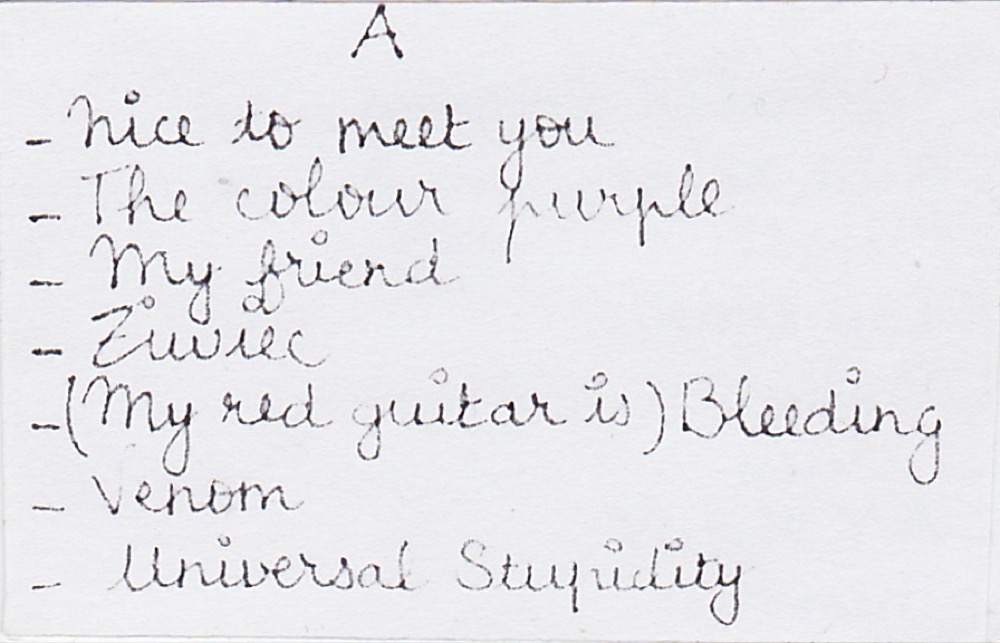 A
- Nice to meet you
- The colour purple
- My friend
- Żuwiec
- (My red guitar is) Bleeding
- Venom
- Universal Stupidity